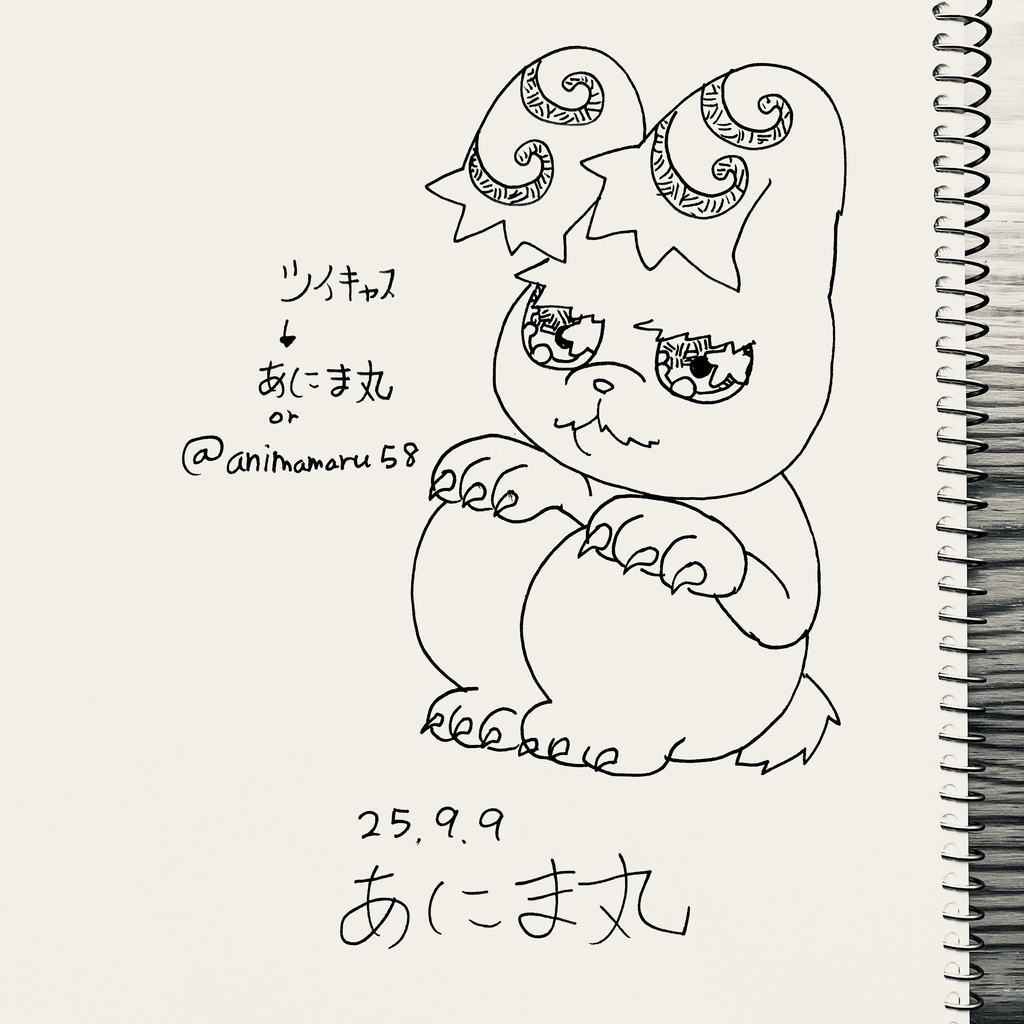 ツイキャス
↓
あにま丸
or
@animamaru58
25.9.9
あにま丸